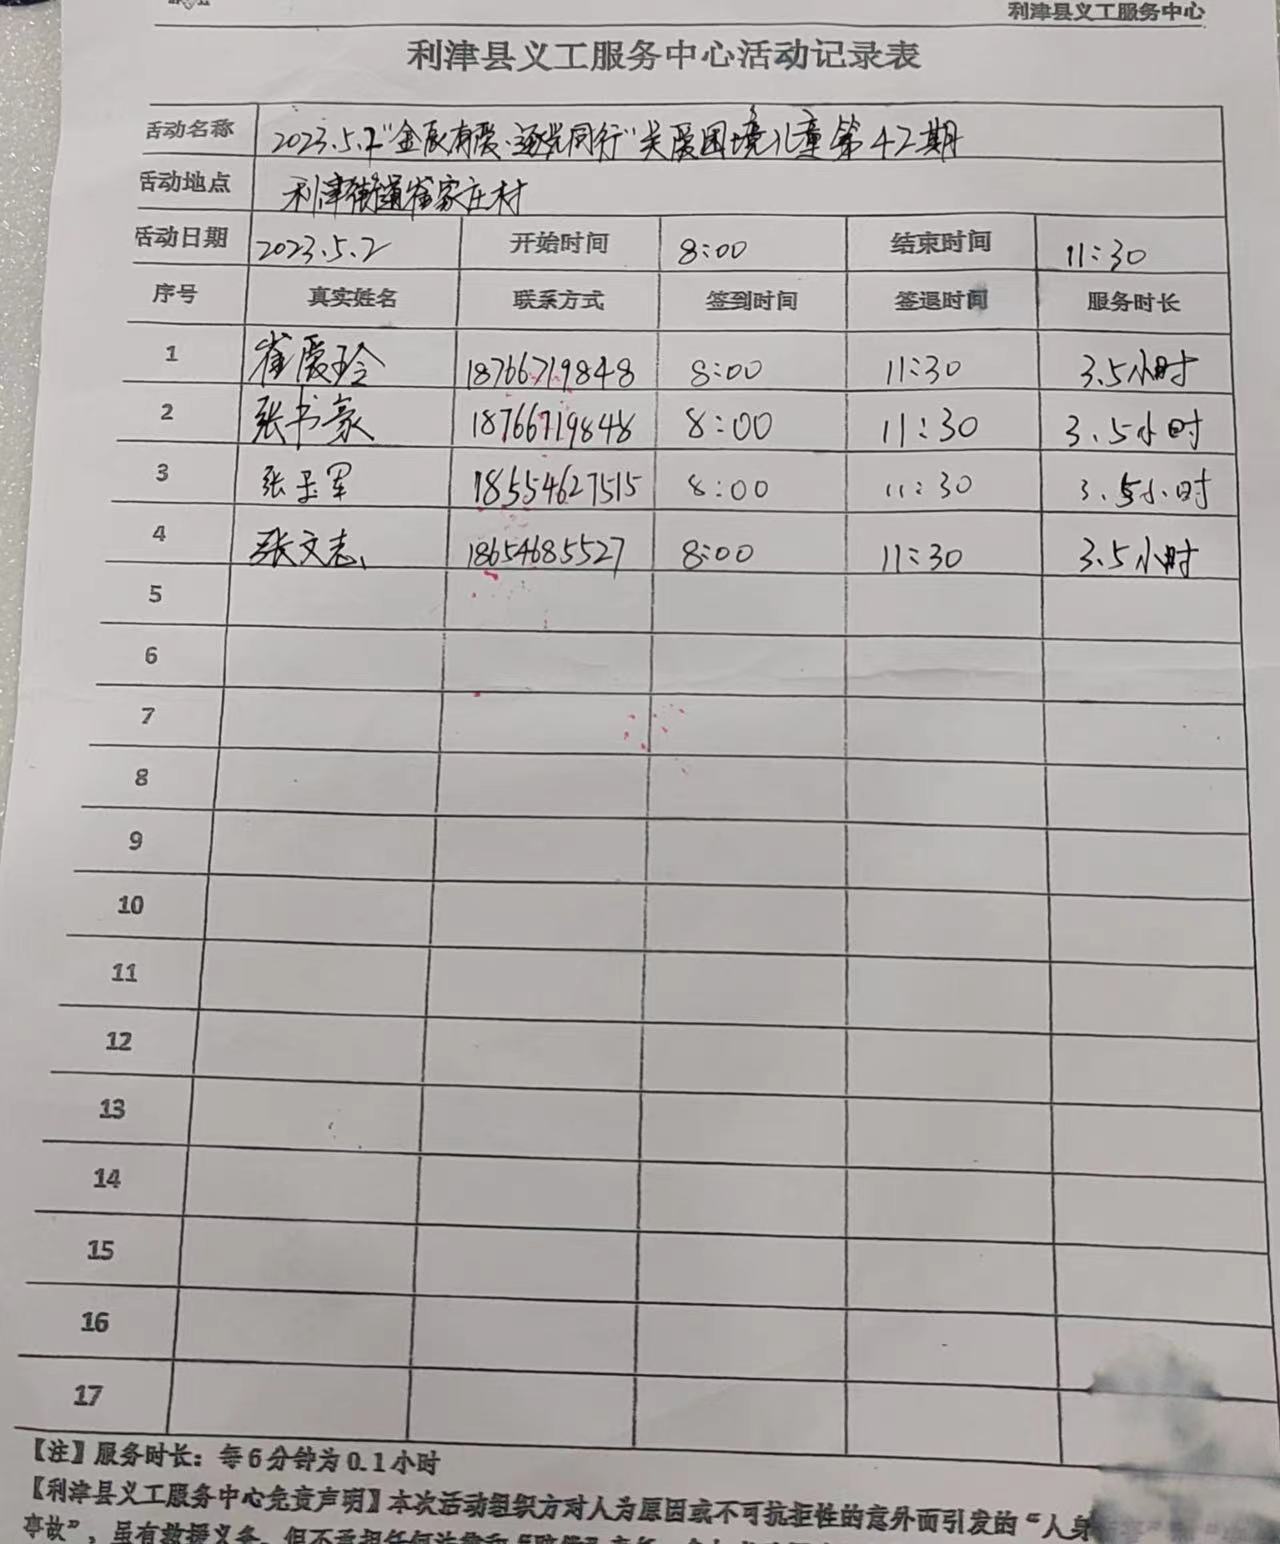 利津县义工服务中心
利津县义工服务中心活动记录表
活动名称 2023.5.2"金辰有爱·逐光同行"关爱困境儿童第42期
活动地点 利津街道崔家庄村
活动日期 2023.5.2 开始时间 8:00 结束时间 11:30
序号 真实姓名 联系方式 签到时间 签退时间 服务时长
1 崔爱玲 18766719848 8:00 11:30 3.5小时
2 张书豪 18766719848 8:00 11:30 3.5小时
3 张军 18554627515 8:00 11:30 3.5小时
4 张文志 18654685527 8:00 11:30 3.5小时
5
6
7
8
9
10
11
12
13
14
15
16
17
【注】服务时长：每6分钟为0.1小时
【利津县义工服务中心免责声明】本次活动组织方对人为原因或不可抗拒性的意外而引发的“人身
事故”，虽有救援义务，但不承担任何法律和“赔偿”责任